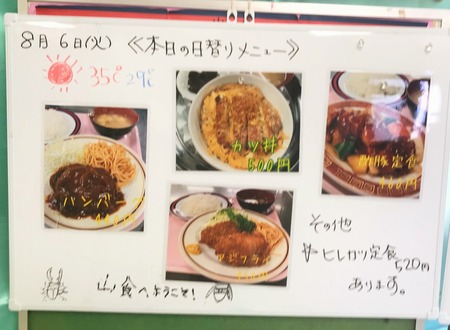 8月6日(火) ≪本日の日替りメニュー≫
35℃ 29℃
カツ丼
500円
酢豚定食
ハンバーグ
アジフライ
その他
ヒレカツ定食
520円
あります。
山食へようこそ!